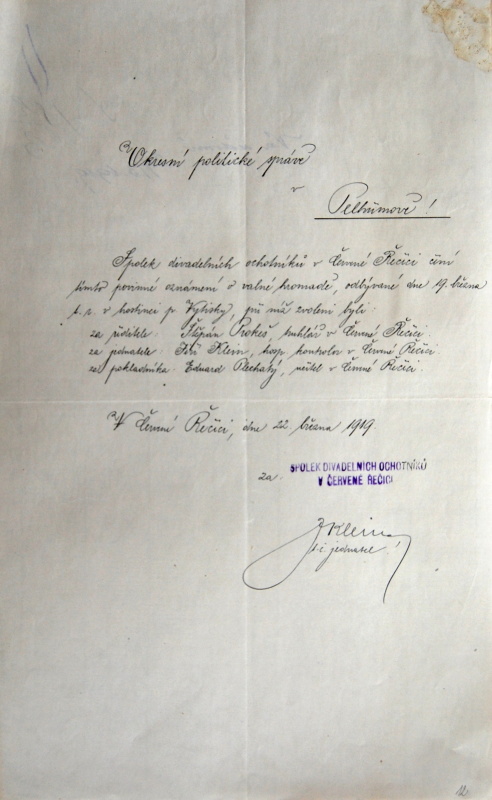 Okresní politické správě
v
Pelhřimově!
Spolek divadelních ochotníků v Červené Řečici činí
tímto povinné oznámení o valné hromadě, odbývané dne 19. března
t. r. v hostinci p. Kytisky, při níž zvoleni byli:
za ředitele: Štěpán Prokeš, truhlář v Červené Řečici.
za jednatele: Klein, hosp. kontrolor v Červené Řečici.
za pokladníka: Eduard Plechatý, učitel v Červené Řečici.
V Červené Řečici, dne 22. března 1919
za:
SPOLEK DIVADELNÍCH OCHOTNÍKŮ
V ČERVENÉ ŘEČICI
JKlein
t. č. jednatel!
12